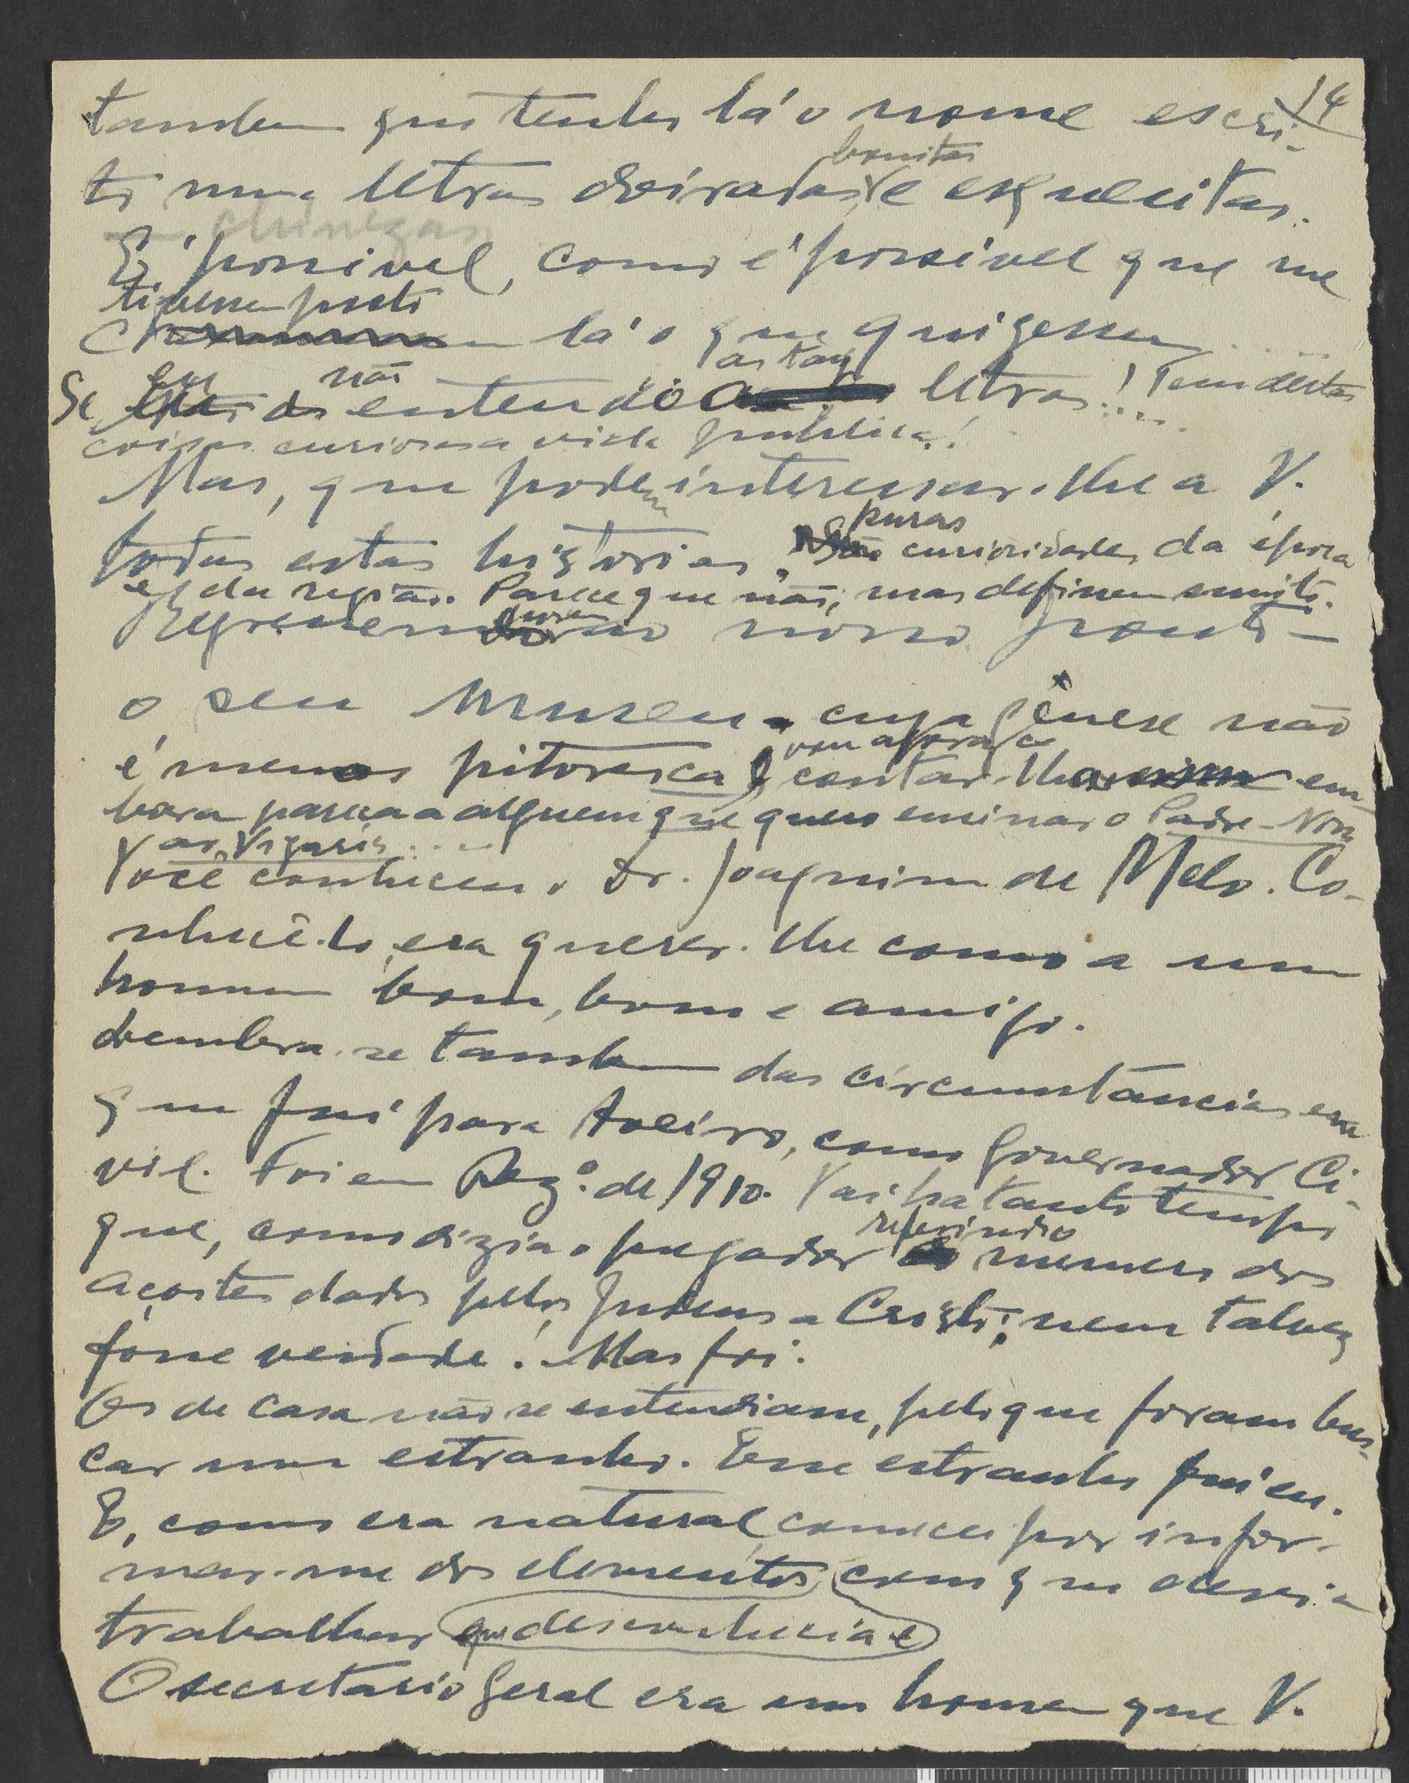 14
tambem que tenho lá o nome escri-
to numas letras doiradas, bonitas e esquesitas.
chinezas
É possivel, como é possivel que me
tivessem posto lá o que quizessem.....
Se eu não entendo as tais letras!... Tem destas
coisas curiosas a vida publica!
Mas, que podem interessar-lhe a V.
todas estas historias. São puras curiosidades da época
e da região. Parece que não, mas definem muito.
Regressemos ao nosso ponto -
o seu Museu - cuja génese não
é menos pitoresca e vou agora contar-lha em-
bora pareça a alguem que quero ensinar o Padre-Nosso
ao Vigario....
Você conheceu o Dr. Joaquim de Melo. Co-
nhecê-lo, era querer-lhe como a um
homem bom, bom e amigo.
Lembra-se tambem das circumstâncias em
que fui para Aveiro, como Governador Ci-
vil. Foi em Dezº. de 1910. Vai ha tanto tempo
que, como dizia o pregador referindo o numero dos
açoites dados pelos Judeus a Cristo, nem talvez
fosse verdade! Mas foi.
Os de casa não se entendiam, pelo que foram bus-
car um estranho. Esse estranho fui eu.
E, como era natural, comecei por infor-
mar-me dos elementos com que devia
trabalhar e que desconhecia
O secretario Geral era um homem que V.